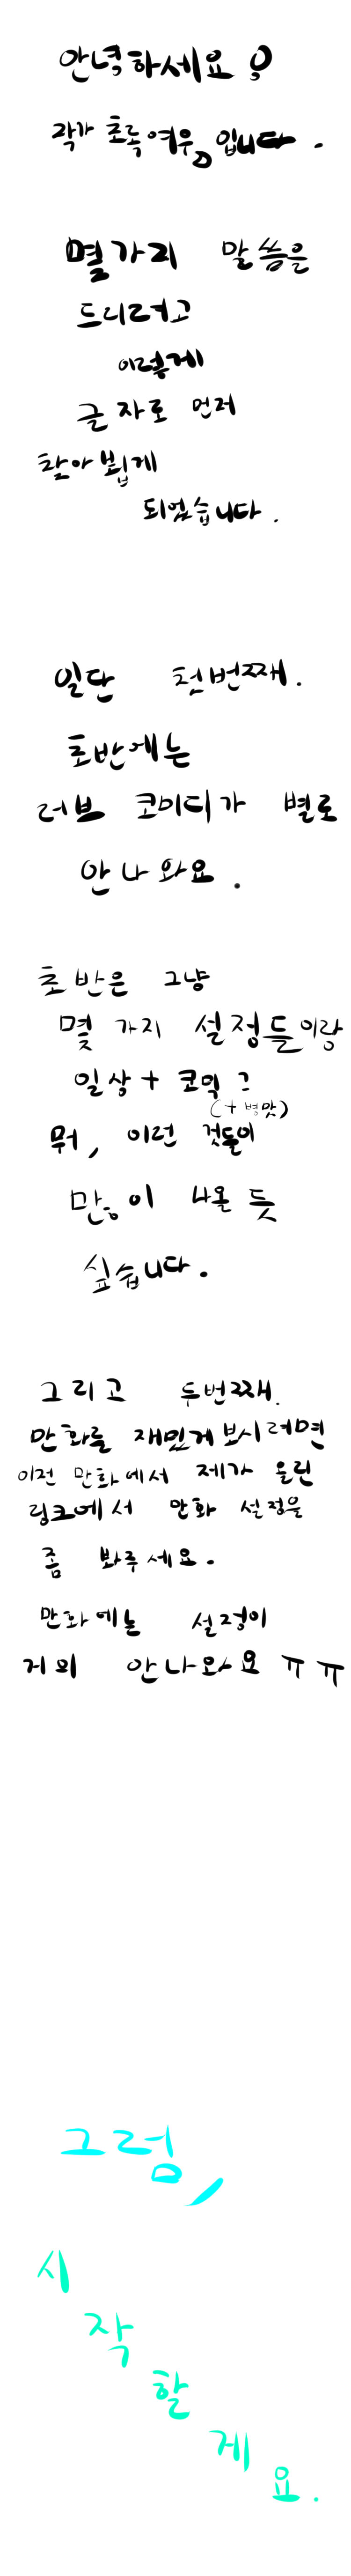 안녕하세요?
작가 초록여우입니다.
몇가지 말씀을
드리려고
이렇게
글자로 먼저
찾아뵙게
되었습니다.
일단 첫번째.
초반에는
러브 코미디가 별로
안나와요.
초반은 그냥
몇 가지 설정들이랑
일상+코믹 그
(+병맛)
뭐, 이런 것들이
많이 나올 듯
싶습니다.
그리고 두번째.
만화를 재밌게 보시려면
이전 만화에서 제가 올린
링크에서 만화 설정을
좀 봐주세요.
만화에는 설정이
거의 안나와요 ㅠㅠ
그럼,
시
작
할
게
요.